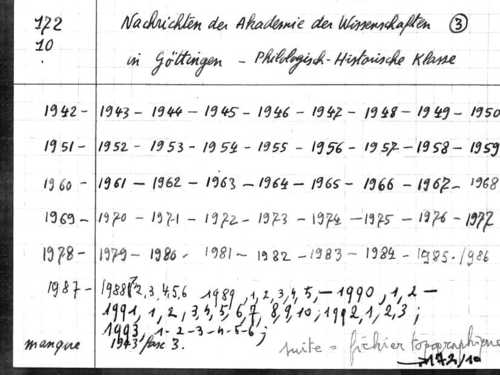 172 Nachrichten der Akademie der Wissenschaften ③
10 in Göttingen - Philologisch-Historische Klasse
1942 - 1943 - 1944 - 1945 - 1946 - 1947 - 1948 - 1949 - 1950
1951 - 1952 - 1953 - 1954 - 1955 - 1956 - 1957 - 1958 - 1959
1960 - 1961 - 1962 - 1963 - 1964 - 1965 - 1966 - 1967 - 1968
1969 - 1970 - 1971 - 1972 - 1973 - 1974 - 1975 - 1976 - 1977
1978 - 1979 - 1980 - 1981 - 1982 - 1983 - 1984 - 1985 - 1986
1987 - 1988, 2, 3, 4, 5, 6 1989, 1, 2, 3, 4, 5, - 1990, 1, 2 -
1991, 1, 2, 3, 4, 5, 6, 7, 8, 9, 10; 1992, 1, 2, 3;
1993, 1-2-3-4-5-6;
manque 1943 fasc 3. suite = fichier topographique
172/10